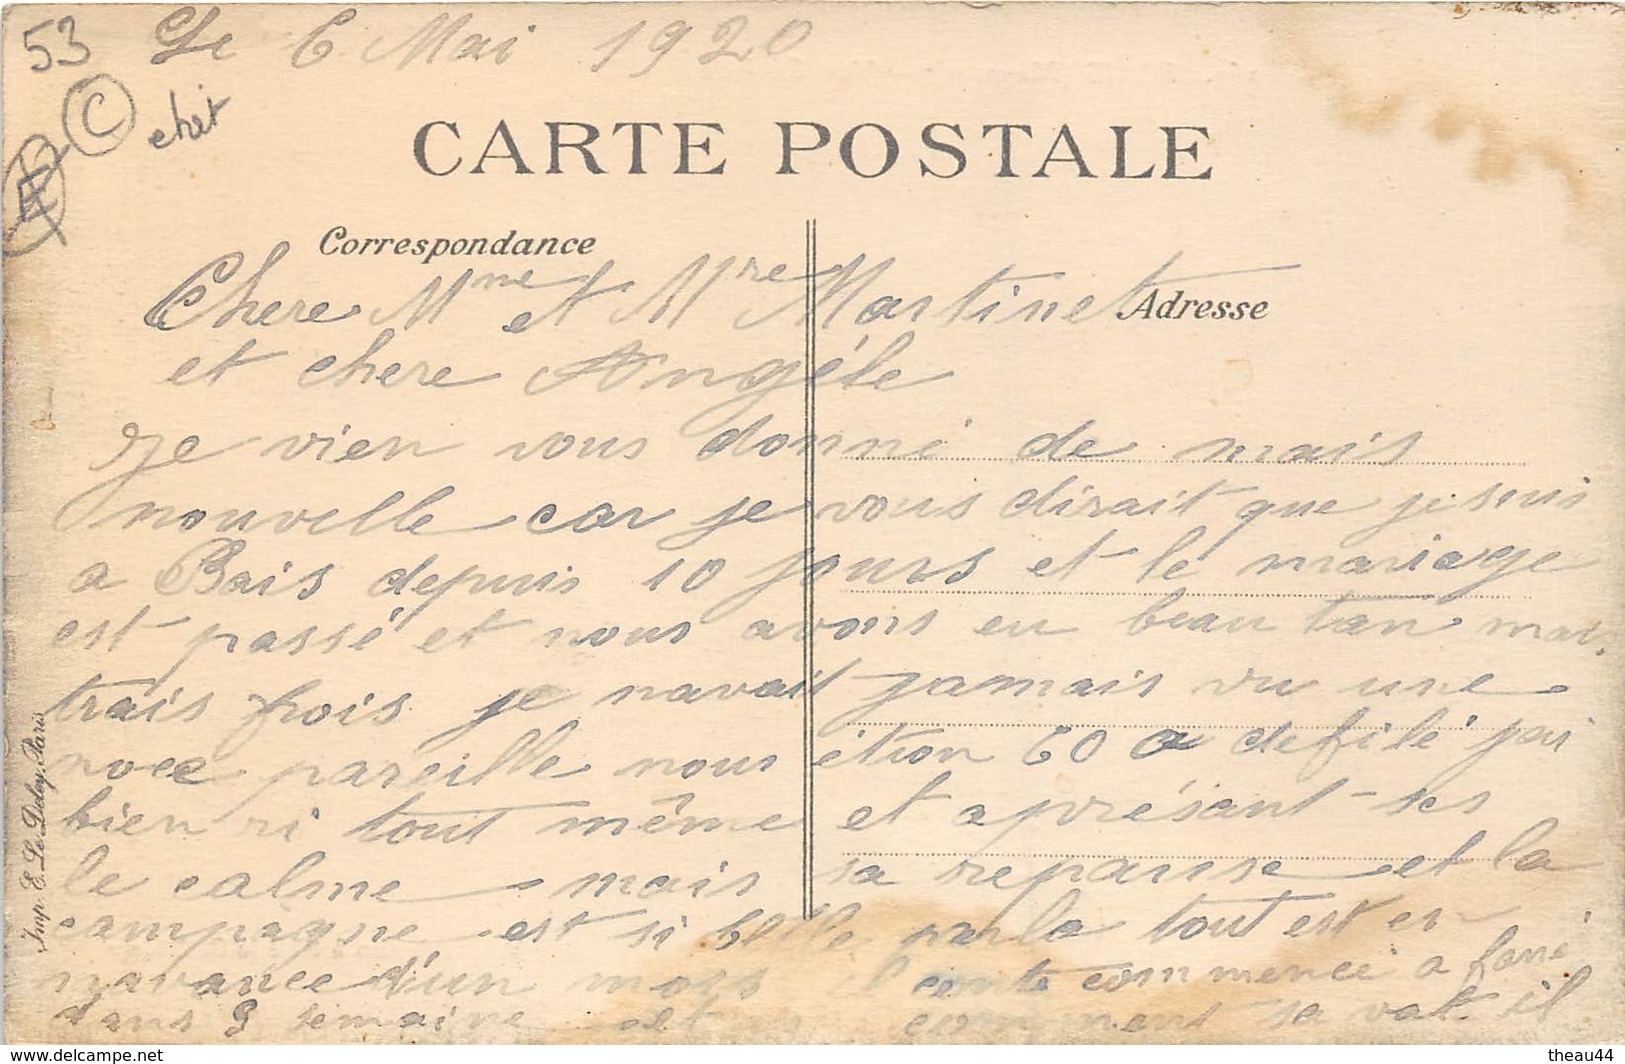 53 Le 6 Mai 1920
C
chit
E
CARTE POSTALE
Correspondance
Adresse
Chere Mme et Mre Martinet
et chere Angéle
je vien vous donné de mais
nouvelle car je vous dirait que je suui
a Bais depuis 10 jours et le mariage
est passé et nous avons eu beau tan mai
trais frois je navait jamais vu une
noce pareille nous étion 60 a defilé jai
bien ri tout même et aprésant ses
le calme mais sa repause et la
campagne est si belle par la tout est en
navance d'un mois commence a fané
dans 3 semaine comment sa vat il
Imp. E. Le Deley, Paris
theau44